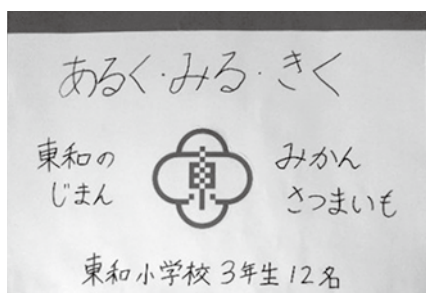 あるく・みる・きく
東和の
じまん
みかん
さつまいも
東和小学校3年生12名